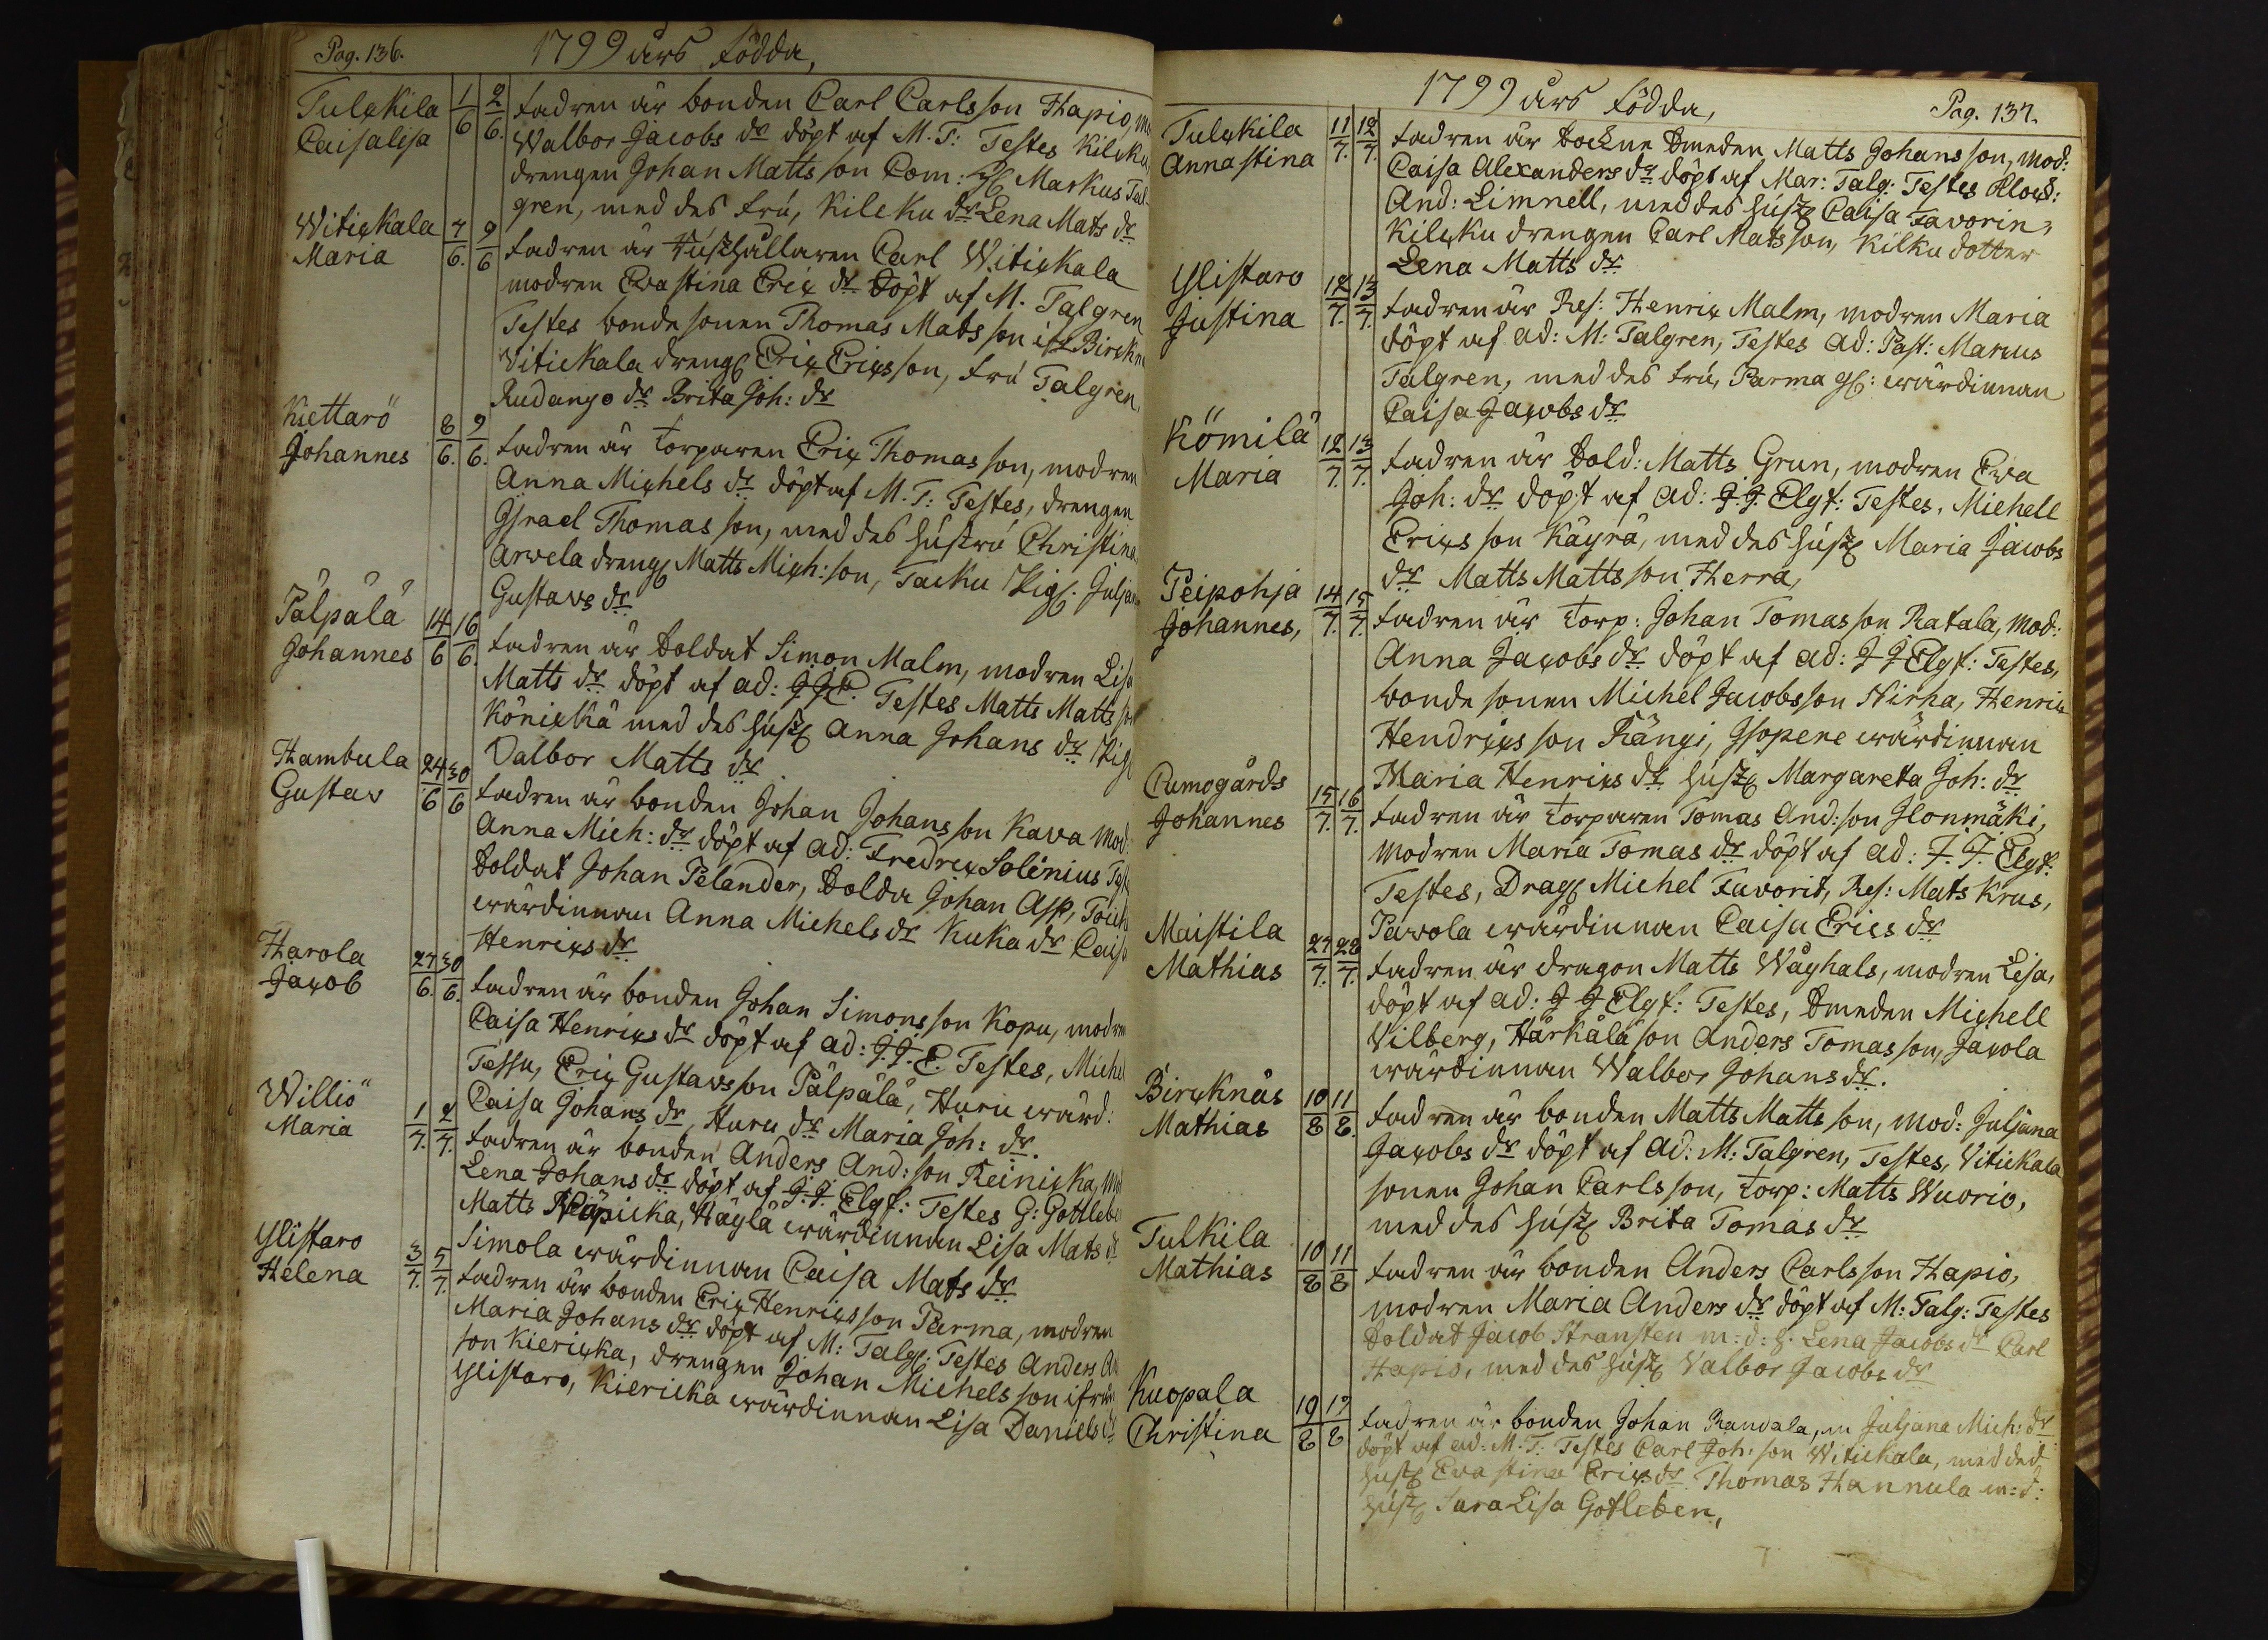 Pag. 136.
1799 års födda,
Tulckila 1/6 2/6. fadren är bonden Carl Carlsson Hapio,
Caisalisa Walbor Jacobs dr döpt af M. T: Testes Kilcku
drengen Johan Matts son Com: Markus Tal-
gren, med des frú, Kilcku dr Lena Mats dr
Witickala 7/6. 9/6 fadren är Húshållaren Carl Witickala
Maria modren Evastina Eric dr döpt af M. Talgren
Testes bonde sonen Thomas Mats son Birckn
Vitickala dreng Eric Ericsson, frú Talgren,
Rudango dr Brita Joh: dr
Kiettarö 8/6. 9/6. fadren är torparen Eric Thomas son, modren
Johannes Anna Michels dr döpt af M. T: Testes, drengen
Israel Thomas son, med des hústrú Christina
Arvela dreng Matts Mich: son, Tacku Pig: Julja
Gustavs dr
Pälpälä 14/6 16/6. fadren är Soldat Simon Malm, modren Lisa
Johannes Matts dr döpt af ad: J J E. Testes Matts Matts son
Könickä med des hust Anna Johans dr Pig
Valbor Matts dr
Hambula 24/6 30/6 fadren är bonden Johan Johans son Kava mod:
Gustav Anna Mich: dr döpt af ad: Fredric Solénius Test
Soldat Johan Pelander, Solda Johan Asp,
wärdinnan Anna Michels dr Kuka dr Caisa
Henrics dr
Harola 27/6. 30/6. fadren är bonden Johan Simonsson Kopu, modren
Jacob Caisa Henrics dr döpt af ad: J. J. E. Testes, Michel
Tessu, Eric Gustavsson Pälpälä, Huru wärd:
Caisa Johans dr, Huru dr Maria Joh: dr.
Williö 1/7. 2/7. fadren är bonden Anders And: son Reinicka,
Maria Lena Johans dr döpt af J. J. Elgf: Testes G: Gottleben
Matts Näpicka, Häylä wärdinnan Lisa Mats dr
Simola wärdinnan Caisa Mats dr
Ylistaro 3/7. 5/7. fadren är bonden Eric Henricsson Parma, modren
Helena Maria Johans dr döpt af M: Talg: Testes Anders
son Kiericka, drengen Johan Michels son ifrån
Ylistaro, Kiericka wärdinnan Lisa Daniels dr
1799 års födda,
Pag. 137.
Tulckila 11/7. 12/7. fadren är Sockne Smeden Matts Johansson, mod:
Annastina Caisa Alexanders dr döpt af Mar: Talg: Testes Klock:
And: Limnell, med des húst Caisa Favorin,
Kilcku drengen Carl Matsson, Kilku dotter
Lena Matts dr
Ylistaro 12/7. 13/7. fadren är Res: Henric Malm, modren Maria
Justina döpt af ad: M: Talgren, Testes Ad: Past: Marcus
Talgren, med des frú, Parma g: wärdinnan
Caisa Jacobs dr
Kömilä 12/7. 13/7. fadren är Sold: Matts Grun, modren Eva
Maria Joh: dr döpt af ad: J. J. Elgf: Testes, Michell
Erics son Käyrä, med des húst Maria Jacobs
dr Matts Matts son Herra,
Peipohja 14/7. 15/7. fadren är torp: Johan Tomas son Ratala, mod:
Johannes, Anna Jacobs dr döpt af ad: J J Elgf: Testes,
bonde sonen Michel Jacobsson Nirha, Henric
Hendrics son Rängi, Isopere wärdinnan
Maria Henrics dr húst Margareta Joh: dr
Cumogårds 15/7. 16/7. fadren är torparen Tomas And: son Ilonmäki,
Johannes modren Maria Tomas dr döpt af ad: J. J. Elgf:
Testes, Drag Michel Favorit, Res: Mats Krus,
Pavola wärdinnan Caisa Erics dr
Maistila 27/7. 28/7. fadren är dragon Matts Wåghals, modren Lisa,
Mathias döpt af ad: J J Elgf: Testes, Smeden Michell
Vilberg, Härkälä son Anders Tomas son, Jacola
wärdinnan Walbor Johans dr.
Bircknäs 10/8 11/8. fadren är bonden Matts Matts son, mod: Juljana
Mathias Jacobs dr döpt af Ad: M: Talgren, Testes, Vitickala
sonen Johan Carlsson, torp: Matts Wuorio,
med des húst Brita Tomas dr
Tulkila 10/8 11/8 fadren är bonden Anders Carlsson Hapio,
Mathias modren Maria Anders dr döpt af M: Talg: Testes
Soldat Jacob Stransten m: d: h: Lena Jacobs dr Carl
Hapio, med des húst Valbor Jacobs dr
Kuopala 19/8 19/8 fadren är bonden Johan Randala, m Juljana Mich: dr
Christina döpt af ad: M. T: Testes Carl Joh: son Witickala, med des
hust Eva stina Erics dr Thomas Hannula m: d:
húst Sara Lisa Gotleben,